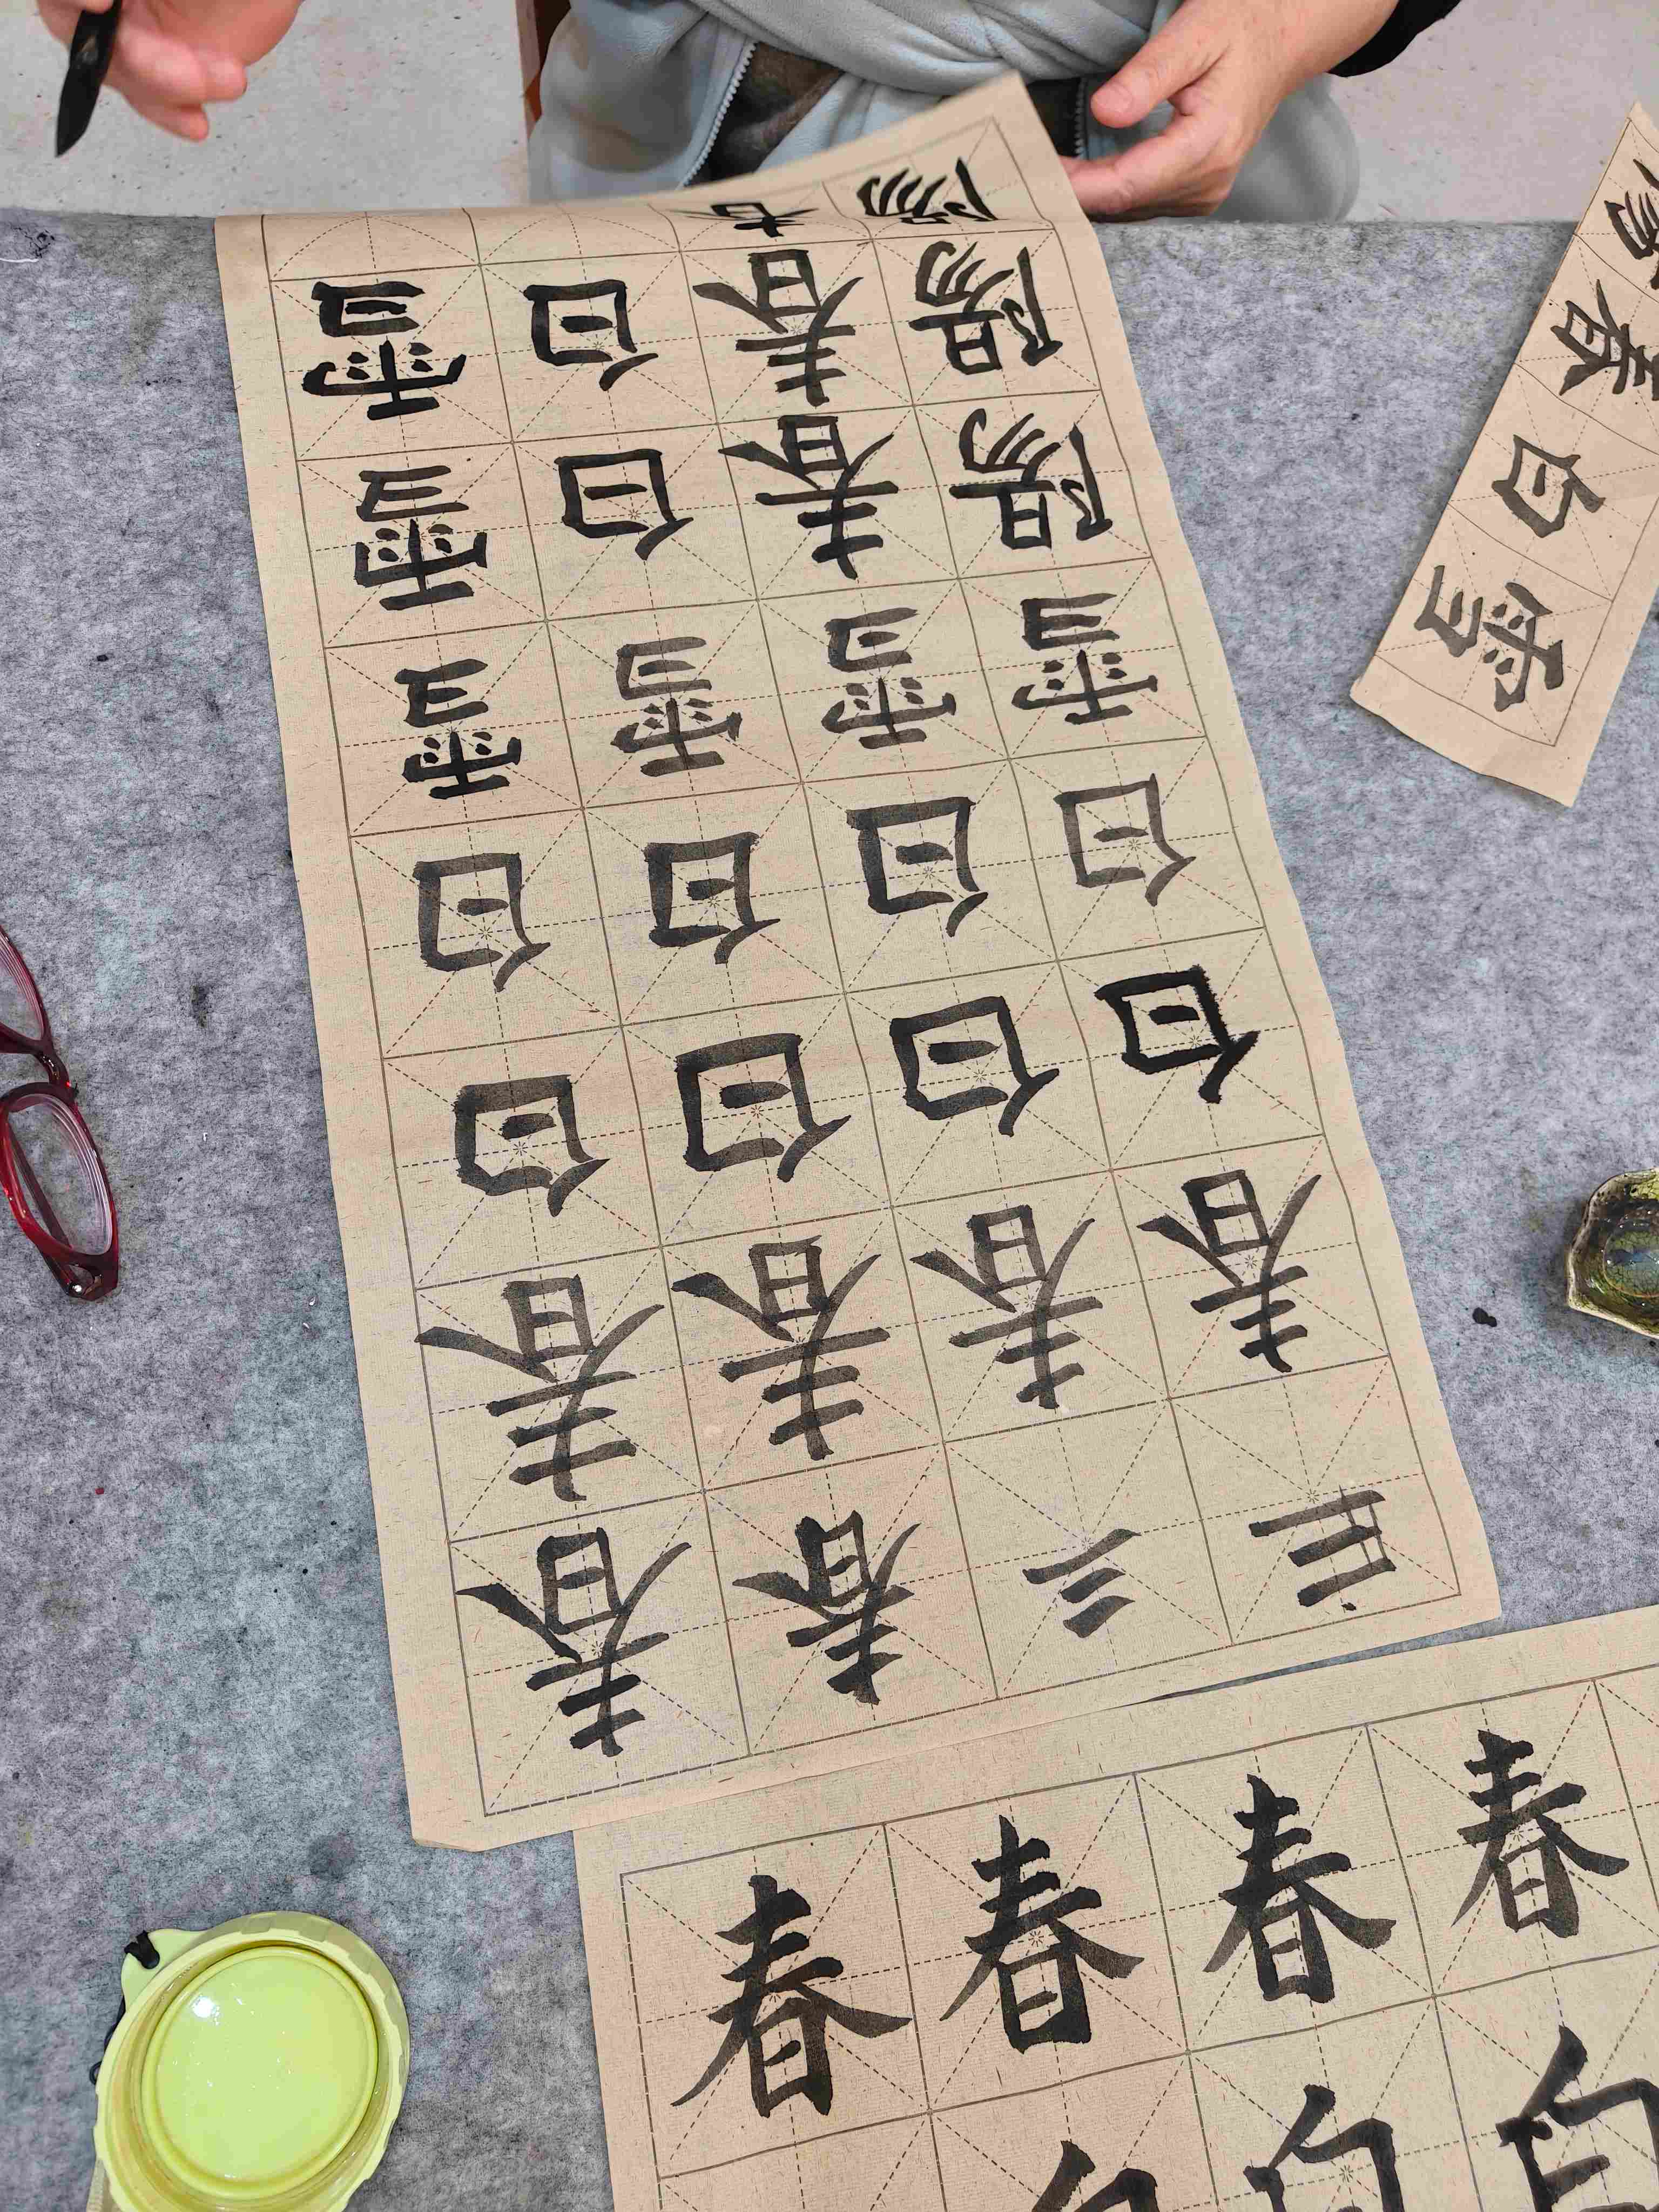 三 春 春
春 春 春 春
白 白 白 白
白 白 白 白
雪 雪 雪 雪
陽 春 白 雪
陽 春 白 雪
陽
陽春白雪
春 春 春 春
白 白 白